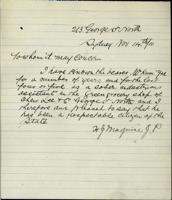 213 George St North
Sydney Nov 14th/10
To whom it may concern
I have known the bearer, Mr
for a number of years and for the last
four or five is a sober industrious
assistant in the Greengrocery shop of
George St North and I
therefore am pleased to say that he
has been a respectable citizen of the
State
H J Maguire J.P